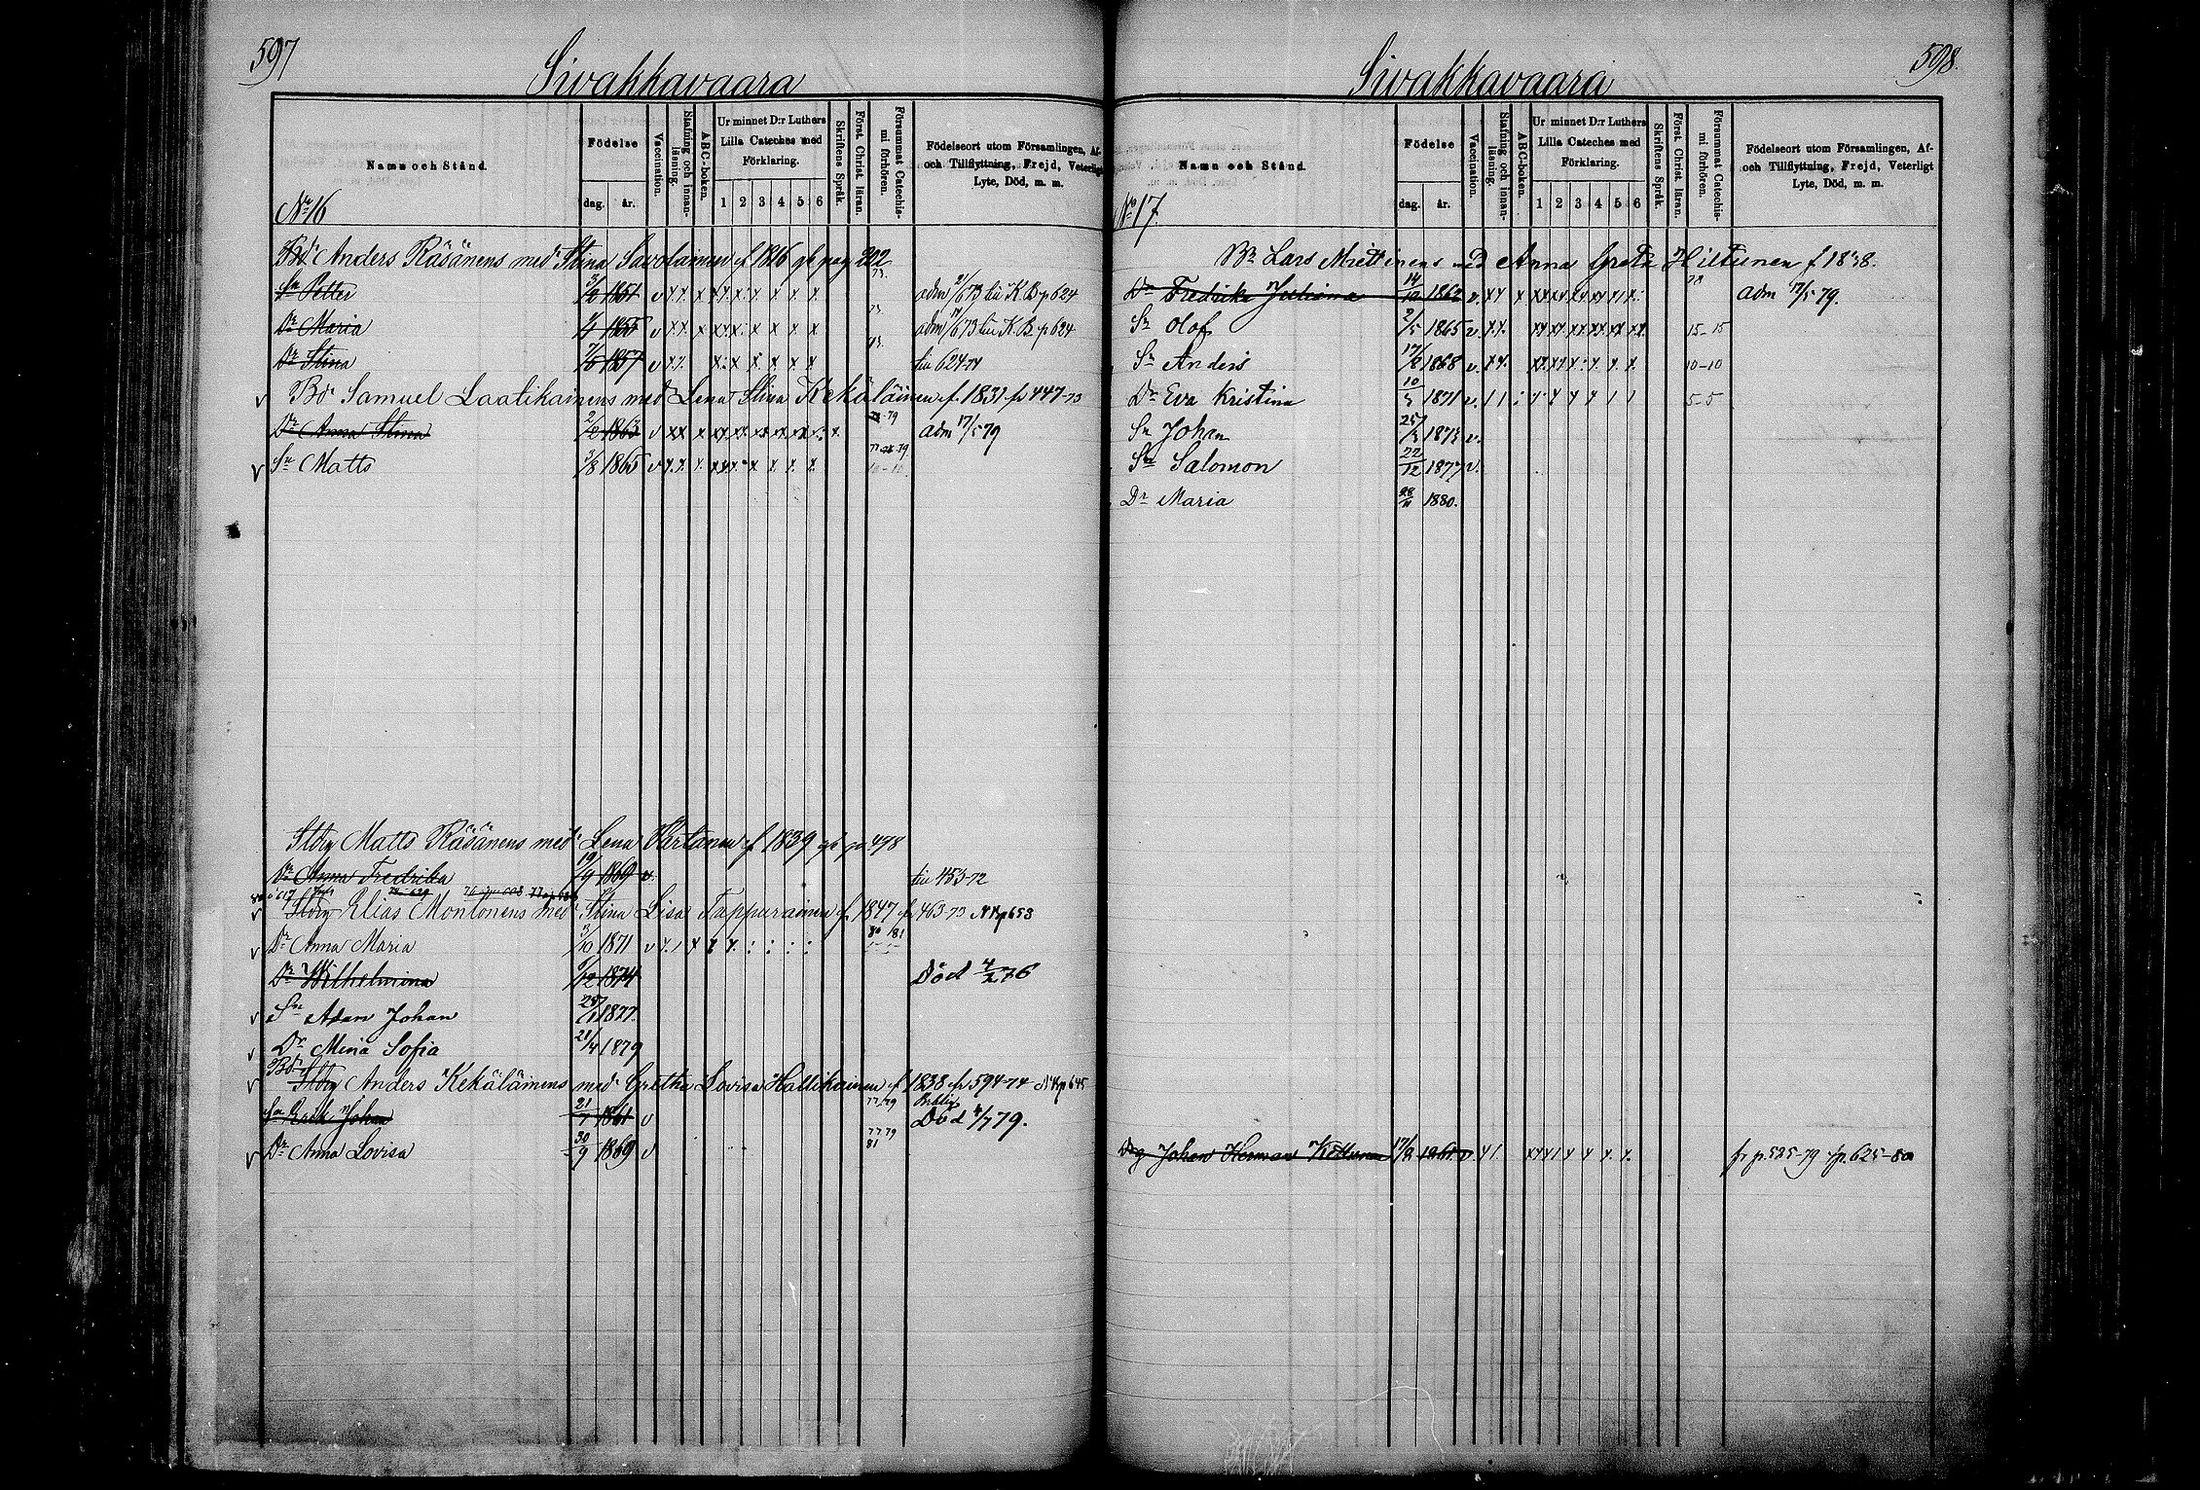 597
Sivakkavaara
Namn och Stånd.
Födelse
dag. år.
Vaccination.
Stafning och innanläsning.
ABC-boken.
Ur minnet D:r Luthers Lilla Cateches med Förklaring.
1 2 3 4 5 6
Skriftens Språk.
Först. Christ. läran.
Försummat Catechismi förhören.
Födelseort utom Församlingen, Af- och Tillflyttning, Frejd, Veterligt Lyte, Död, m. m.
No 16
Bd Anders Räsänens med Stina Savolainen f 1816 gb pag 222
Sn Petter 1851 v adm 73 K B p 624
Dr Maria 1855 v adm 73 K B p 624
Dr Stina 1857 v 624-74
Bdr Samuel Laatikainens med Lena Stina Kekäläinen f. 1831 fr 447-73
Dr Anna Stina 2/2 1863 v adm 17/5 79
Sn Matts 3/8 1865 v 10-10
Matts Räsänens med Lena f 1839 gb p 498
Dr Anna Fredrika 19/9 1869 v. 453-72
Elias Montonens med Stina Lisa Tappurainen f. 1847 fr 463-73 NKp 653
Dr Anna Maria 3/10 1871 v 80 81
Dr Wilhelmina 12 1874 Död 76
Sn Adam Johan 1877.
Dr Mina Sofia 21/4 1879
Anders Kekäläinens med Gretha Lovisa Hallikainen f 1838 fr 594-74 NKp 645
Sn Johan 21/7 1861 v 77 79 Död 79.
Dr Anna Lovisa 30/9 1869 v 77 79 81
598.
Sivakkavaara
Namn och Stånd.
Födelse
dag. år.
Vaccination.
Stafning och innanläsning.
ABC-boken.
Ur minnet D:r Luthers Lilla Cateches med Förklaring.
1 2 3 4 5 6
Skriftens Språk.
Först. Christ. läran.
Försummat Catechismi förhören.
Födelseort utom Församlingen, Af- och Tillflyttning, Frejd, Veterligt Lyte, Död, m. m.
No 17.
Bn Lars Miettinens med Anna Greta Hiltunen f 1838.
Dr Fredrika Juliana 14/10 1862 v. adm 17/5 79.
Sn Olof 2/5 1865 v. 15-15
Sn Anders 17/8 1868 v. 10-10
Dr Eva Kristina 1871 v. 5-5
Sn Johan 1873 v.
Sn Salomon 22/12 1877 v.
Dr Maria 1880.
Drg Johan Herman Kettunen 17/2 1861 v. fr p. 525-79 p. 625-80